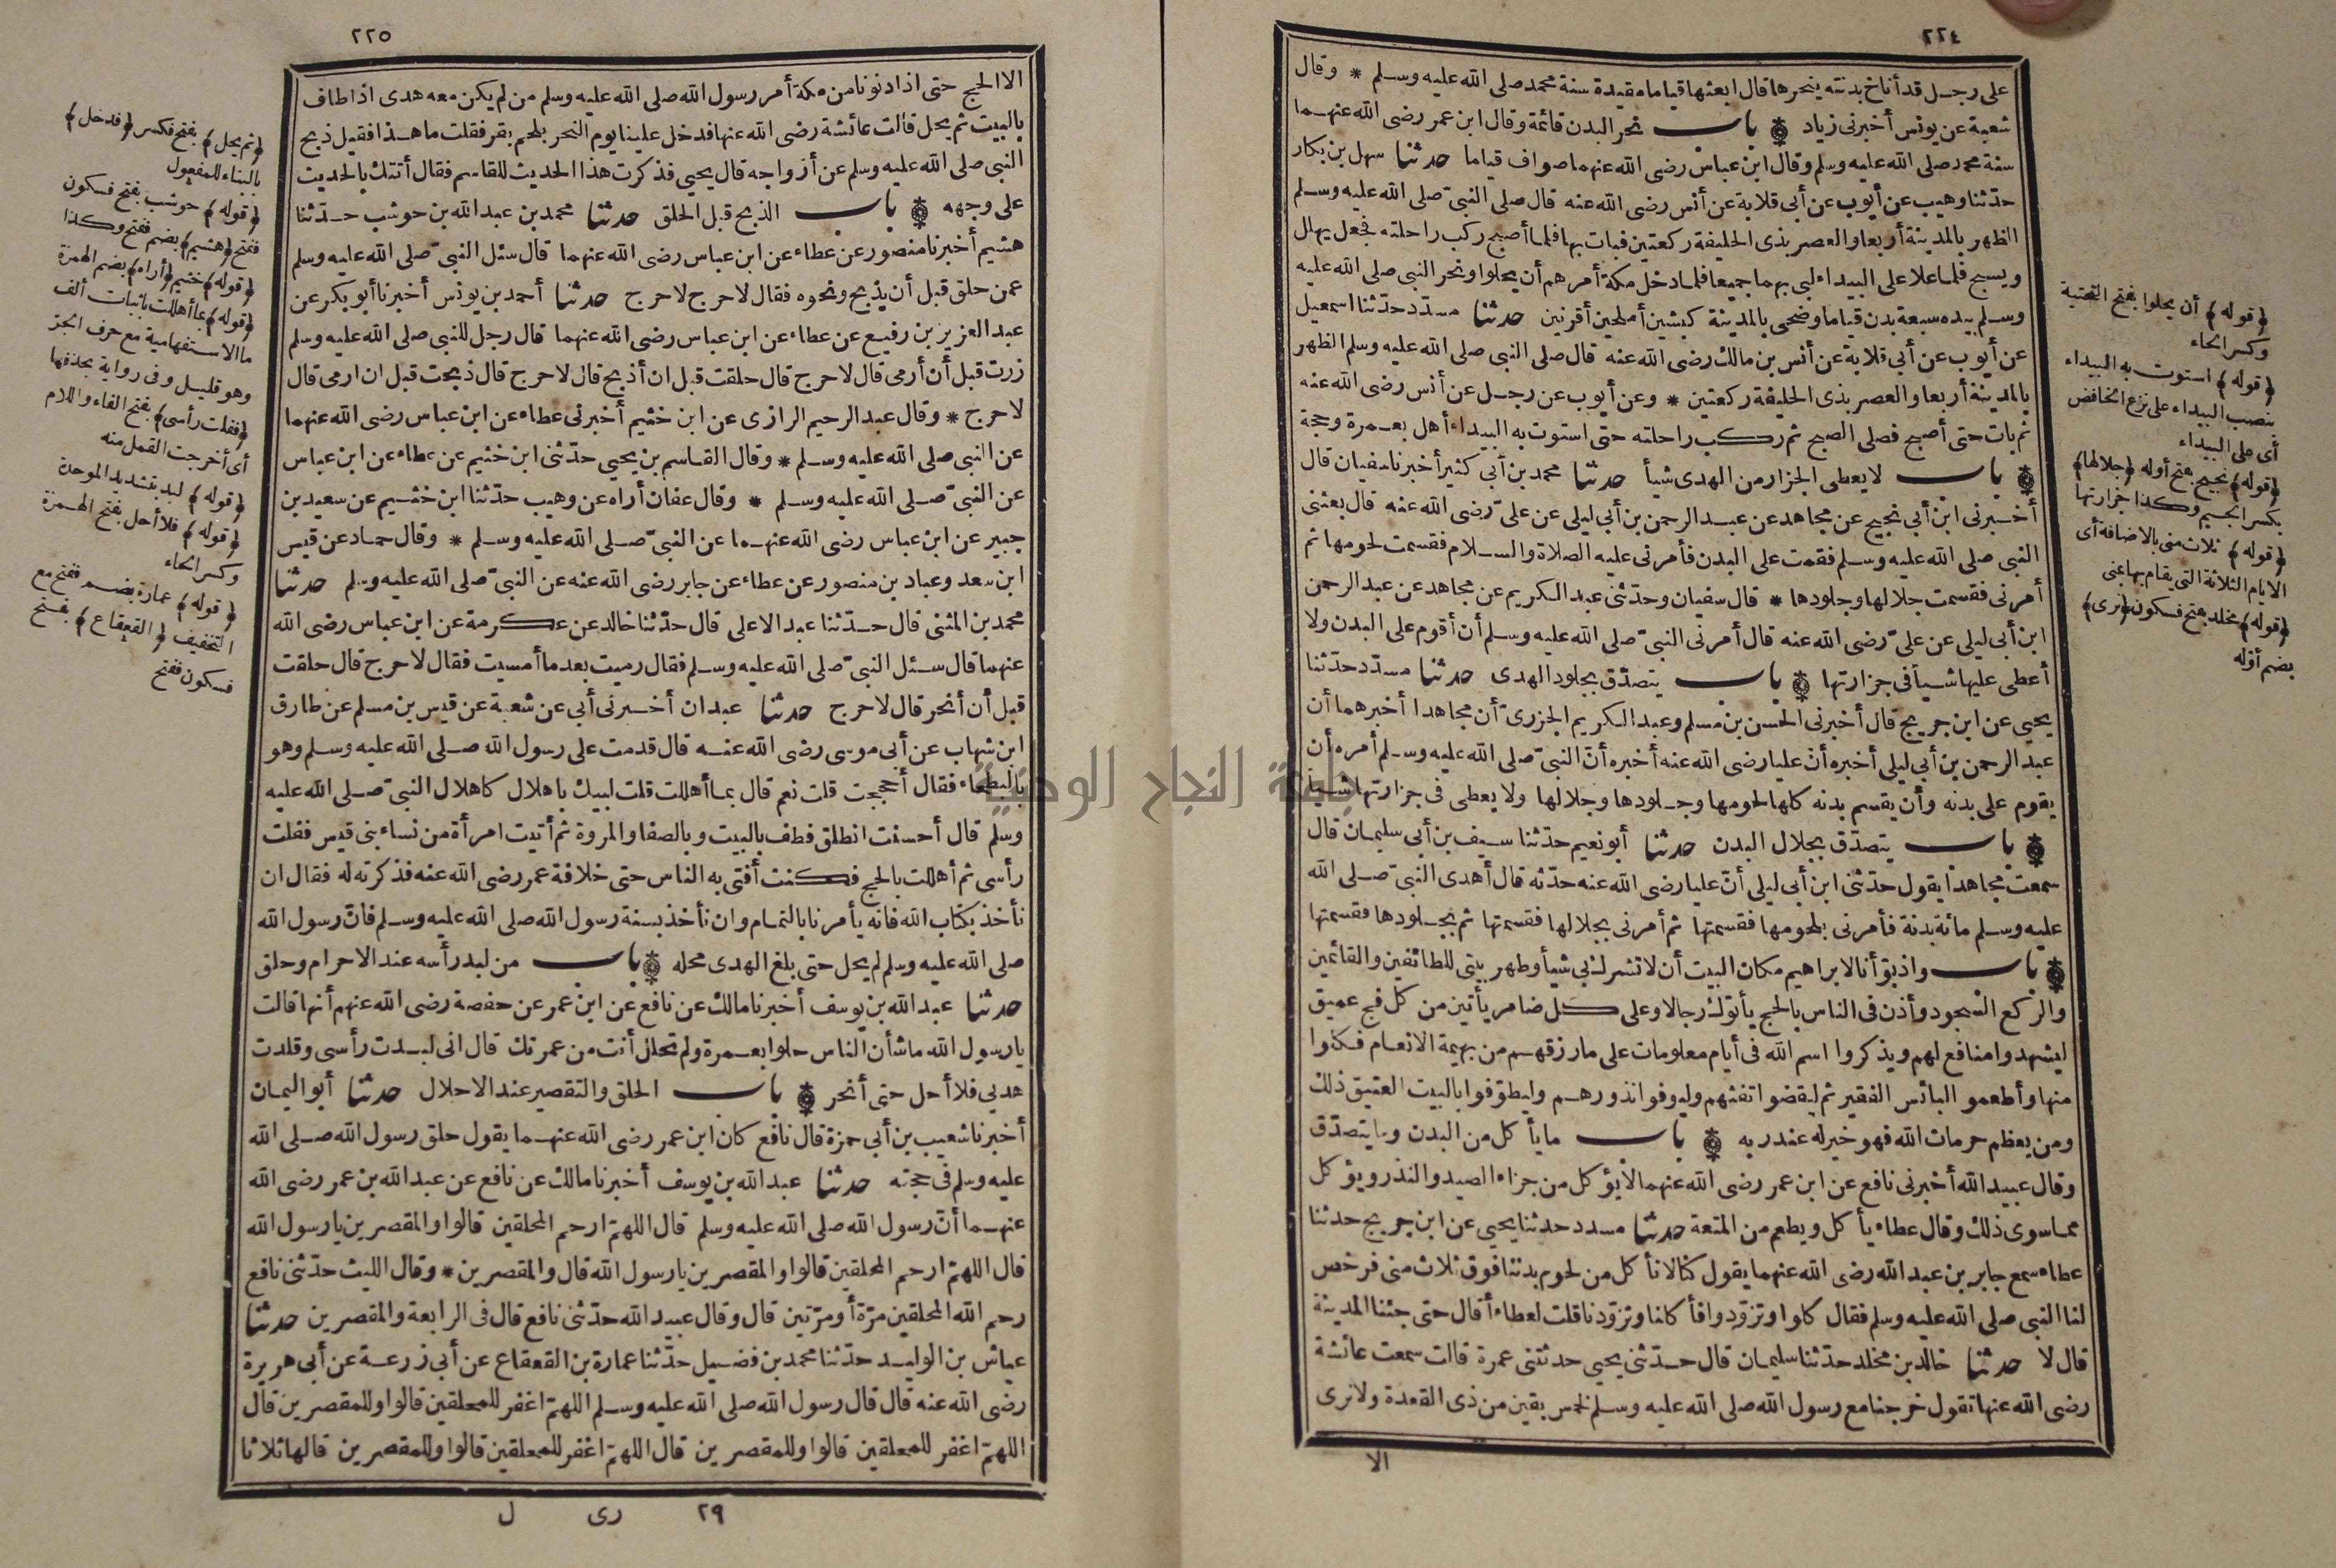 ٢٢٤
على رجل قد أناخ بدنته ينحرها قال ابعثها قياما مقيدة سنة محمد صلى الله عليه وسلم * وقال
شعبة عن يونس أخبرنى زياد باب نحر البدن قائمة وقال ابن عمر رضى الله عنهما
سنة محمد صلى الله عليه وسلم وقال ابن عباس رضى الله عنهما صواف قياما حدثنا سهل بن بكار
حدّثنا وهيب عن أيوب عن أبى قلابة عن أنس رضى الله عنه قال صلى النبىّ صلى الله عليه وسلم
الظهر بالمدينة أربعا والعصر بذى الحليفة ركعتين فبات بها فلما أصبح ركب راحلته فجعل يهلل
ويسبح فلما علا على البيداء لبى بهما جميعا فلما دخل مكة أمرهم أن يحلوا ونحر النبى صلى الله عليه
وسلم بيده سبعة بدن قياما وضحى بالمدينة كبشين أملحين أقرنين حدثنا مسدّد حدّثنا اسمعيل
عن أيوب عن أبى قلابة عن أنس بن مالك رضى الله عنه قال صلى النبى صلى الله عليه وسلم الظهر
بالمدينة أربعا والعصر بذى الحليفة ركعتين * وعن أيوب عن رجل عن أنس رضى الله عنه
ثم بات حتى أصبح فصلى الصبح ثم ركب راحلته حتى استوت به البيداء أهل بعمرة وحجة
باب لا يعطى الجزار من الهدى شيأ حدثنا محمد بن أبى كثير أخبرنا سفيان قال
أخبرنى ابن أبى نجيح عن مجاهد عن عبد الرحمن بن أبى ليلى عن علىّ رضى الله عنه قال بعثنى
النبى صلى الله عليه وسلم فقمت على البدن فأمرنى عليه الصلاة والسلام فقسمت لحومها ثم
أمرنى فقسمت جلالها وجلودها * قال سفيان وحدّثنى عبد الكريم عن مجاهد عن عبد الرحمن
ابن أبى ليلى عن علىّ رضى الله عنه قال أمرنى النبىّ صلى الله عليه وسلم أن أقوم على البدن ولا
أعطى عليها شيأ فى جزارتها باب يتصدّق بجلود الهدى حدثنا مسدّد حدّثنا
يحيى عن ابن جريج قال أخبرنى الحسن بن مسلم وعبد الكريم الجزرىّ أن مجاهدا أخبرهما أن
عبد الرحمن بن أبى ليلى أخبره أنّ عليا رضى الله عنه أخبره أنّ النبىّ صلى الله عليه وسلم أمره أن
يقوم على بدنه وأن يقسم بدنه كلها لحومها وجلودها وجلالها ولا يعطى فى جزارتها شيأ
باب يتصدّق بجلال البدن حدثنا أبو نعيم حدّثنا سيف بن أبى سليمان قال
سمعت مجاهدا يقول حدّثنى ابن أبى ليلى أنّ عليا رضى الله عنه حدّثه قال أهدى النبىّ صلى الله
عليه وسلم مائة بدنة فأمرنى بلحومها فقسمتها ثم أمرنى بجلالها فقسمتها ثم بجلودها فقسمتها
باب واذ بوّأنا لابراهيم مكان البيت أن لا تشرك بى شيأ وطهر بيتى للطائفين والقائمين
والركع السجود وأذن فى الناس بالحج يأتوك رجالا وعلى كل ضامر يأتين من كل فج عميق
ليشهدوا منافع لهم ويذكروا اسم الله فى أيام معلومات على مارزقهم من بهيمة الانعام فكلوا
منها وأطعمو البائس الفقير ثم ليقضوا تفثهم وليوفوا نذورهم وليطوّفوا بالبيت العتيق ذلك
ومن يعظم حرمات الله فهو خير له عند ربه باب ما يأكل من البدن وما يتصدّق
وقال عبيد الله أخبرنى نافع عن ابن عمر رضى الله عنهما لا يؤكل من جزاء الصيد والنذر ويؤكل
مما سوى ذلك وقال عطاء يأكل ويطعم من المتعة حدثنا مسدد حدثنا يحيى عن ابن جريج حدثنا
عطاء سمع جابر بن عبد الله رضى الله عنهما يقول كنا لا نأكل من لحوم بدننا فوق ثلاث منى فرخص
لنا النبى صلى الله عليه وسلم فقال كلوا وتزوّدوا فأكلنا وتزوّدنا قلت لعطاء أقال حتى جئنا المدينة
قال لا حدثنا خالد بن مخلد حدّثنا سليمان قال حدّثنى يحيى حدثتنى عمرة قالت سمعت عائشة
رضى الله عنها تقول خرجنا مع رسول الله صلى الله عليه وسلم لخمس بقين من ذى القعدة ولا نرى
الا
﴿قوله﴾ أن يحلوا بفتح التحتية
وكسر الحاء
﴿قوله﴾ استوت به البيداء
بنصب البيداء على نزع الخافض
أى على البيداء
﴿قوله﴾ نجيح بفتح أوله ﴿جلالها﴾
بكسر الجيم وكذا جزارتها
﴿قوله﴾ ثلاث منى بالاضافة أى
الايام الثلاثة التى يقام بها بمنى
﴿قوله﴾ مخلد بفتح فسكون ﴿نرى﴾
بضم أوّله
٢٢٥
الا الحج حتى اذا دنونا من مكة أمر رسول الله صلى الله عليه وسلم من لم يكن معه هدى اذا طاف
بالبيت ثم يحل قالت عائشة رضى الله عنها فدخل علينا يوم النحر بلحم بقر فقلت ما هذا فقيل ذبح
النبى صلى الله عليه وسلم عن أزواجه قال يحيى فذكرت هذا الحديث للقاسم فقال أتتك بالحديث
على وجهه باب الذبح قبل الحلق حدثنا محمد بن عبد الله بن حوشب حدّثنا
هشيم أخبرنا منصور عن عطاء عن ابن عباس رضى الله عنهما قال سئل النبىّ صلى الله عليه وسلم
عمن حلق قبل أن يذبح ونحوه فقال لا حرج لا حرج حدثنا أحمد بن يونس أخبرنا أبو بكر عن
عبد العزيز بن رفيع عن عطاء عن ابن عباس رضى الله عنهما قال رجل للنبى صلى الله عليه وسلم
زرت قبل أن أرمى قال لا حرج قال حلقت قبل ان أذبح قال لا حرج قال ذبحت قبل ان ارمى قال
لا حرج * وقال عبد الرحيم الرازى عن ابن خثيم أخبرنى عطاء عن ابن عباس رضى الله عنهما
عن النبى صلى الله عليه وسلم * وقال القاسم بن يحيى حدّثنى ابن خثيم عن عطاء عن ابن عباس
عن النبىّ صلى الله عليه وسلم * وقال عفان أراه عن وهيب حدّثنا ابن خثيم عن سعيد بن
جبير عن ابن عباس رضى الله عنهما عن النبىّ صلى الله عليه وسلم * وقال حماد عن قيس
ابن سعد وعباد بن منصور عن عطاء عن جابر رضى الله عنه عن النبىّ صلى الله عليه وسلم حدثنا
محمد بن المثنى قال حدّثنا عبد الاعلى قال حدّثنا خالد عن عكرمة عن ابن عباس رضى الله
عنهما قال سئل النبىّ صلى الله عليه وسلم فقال رميت بعد ما أمسيت فقال لا حرج قال حلقت
قبل أن أنحر قال لا حرج حدثنا عبدان أخبرنى أبى عن شعبة عن قيس بن مسلم عن طارق
ابن شهاب عن أبى موسى رضى الله عنه قال قدمت على رسول الله صلى الله عليه وسلم وهو
بالبطحاء فقال أحججت قلت نعم قال بما أهللت قلت لبيك باهلال كاهلال النبىّ صلى الله عليه
وسلم قال أحسنت انطلق فطف بالبيت وبالصفا والمروة ثم أتيت امرأة من نساء بنى قيس ففلت
رأسى ثم أهللت بالحج فكنت أفتى به الناس حتى خلافة عمر رضى الله عنه فذكرته له فقال ان
نأخذ بكتاب الله فانه يأمرنا بالتمام وان نأخذ بسنة رسول الله صلى الله عليه وسلم فانّ رسول الله
صلى الله عليه وسلم لم يحل حتى بلغ الهدى محله باب من لبد رأسه عند الاحرام وحلق
حدثنا عبد الله بن يوسف أخبرنا مالك عن نافع عن ابن عمر عن حفصة رضى الله عنهم أنها قالت
يا رسول الله ما شأن الناس حلوا بعمرة ولم تحلل أنت من عمرتك قال انى لبدت رأسى وقلدت
هديى فلا أحل حتى أنحر باب الحلق والتقصير عند الاحلال حدثنا أبو اليمان
أخبرنا شعيب بن أبى حمزة قال نافع كان ابن عمر رضى الله عنهما يقول حلق رسول الله صلى الله
عليه وسلم فى حجته حدثنا عبد الله بن يوسف أخبرنا مالك عن نافع عن عبد الله بن عمر رضى الله
عنهما أنّ رسول الله صلى الله عليه وسلم قال اللهمّ ارحم المحلقين قالوا والمقصرين يا رسول الله
قال اللهمّ ارحم المحلقين قالوا والمقصرين يا رسول الله قال والمقصرين * وقال الليث حدّثنى نافع
رحم الله المحلقين مرّة أو مرّتين قال وقال عبيد الله حدّثنى نافع قال فى الرابعة والمقصرين حدثنا
عياش بن الوليد حدّثنا محمد بن فضيل حدّثنا عمارة بن القعقاع عن أبى زرعة عن أبى هريرة
رضى الله عنه قال قال رسول الله صلى الله عليه وسلم اللهمّ اغفر للمحلقين قالوا وللمقصرين قال
اللهمّ اغفر للمحلقين قالوا وللمقصرين قال اللهمّ اغفر للمحلقين قالوا وللمقصرين قالها ثلاثا
٢٩ رى ل
﴿ثم يحل﴾ بفتح فكسر ﴿فدخل﴾
بالبناء للمفعول
﴿قوله﴾ حوشب بفتح فسكون
ففتح ﴿هشيم﴾ بضم ففتح وكذا
﴿قوله﴾ خثيم ﴿أراه﴾ بضم الهمزة
﴿قوله﴾ بما أهللت باثبات ألف
ما الاستفهامية مع حرف الجرّ
وهو قليل وفى رواية بحذفها
﴿ففلت رأسى﴾ بفتح الفاء واللام
أى أخرجت القمل منه
﴿قوله﴾ لبد بتشديد الموحدة
﴿قوله﴾ فلا أحل بفتح الهمزة
وكسر الحاء
﴿قوله﴾ عمارة بضم ففتح مع
التخفيف ﴿القعقاع﴾ بفتح
فسكون ففتح
جامعة النجاح الوطنية